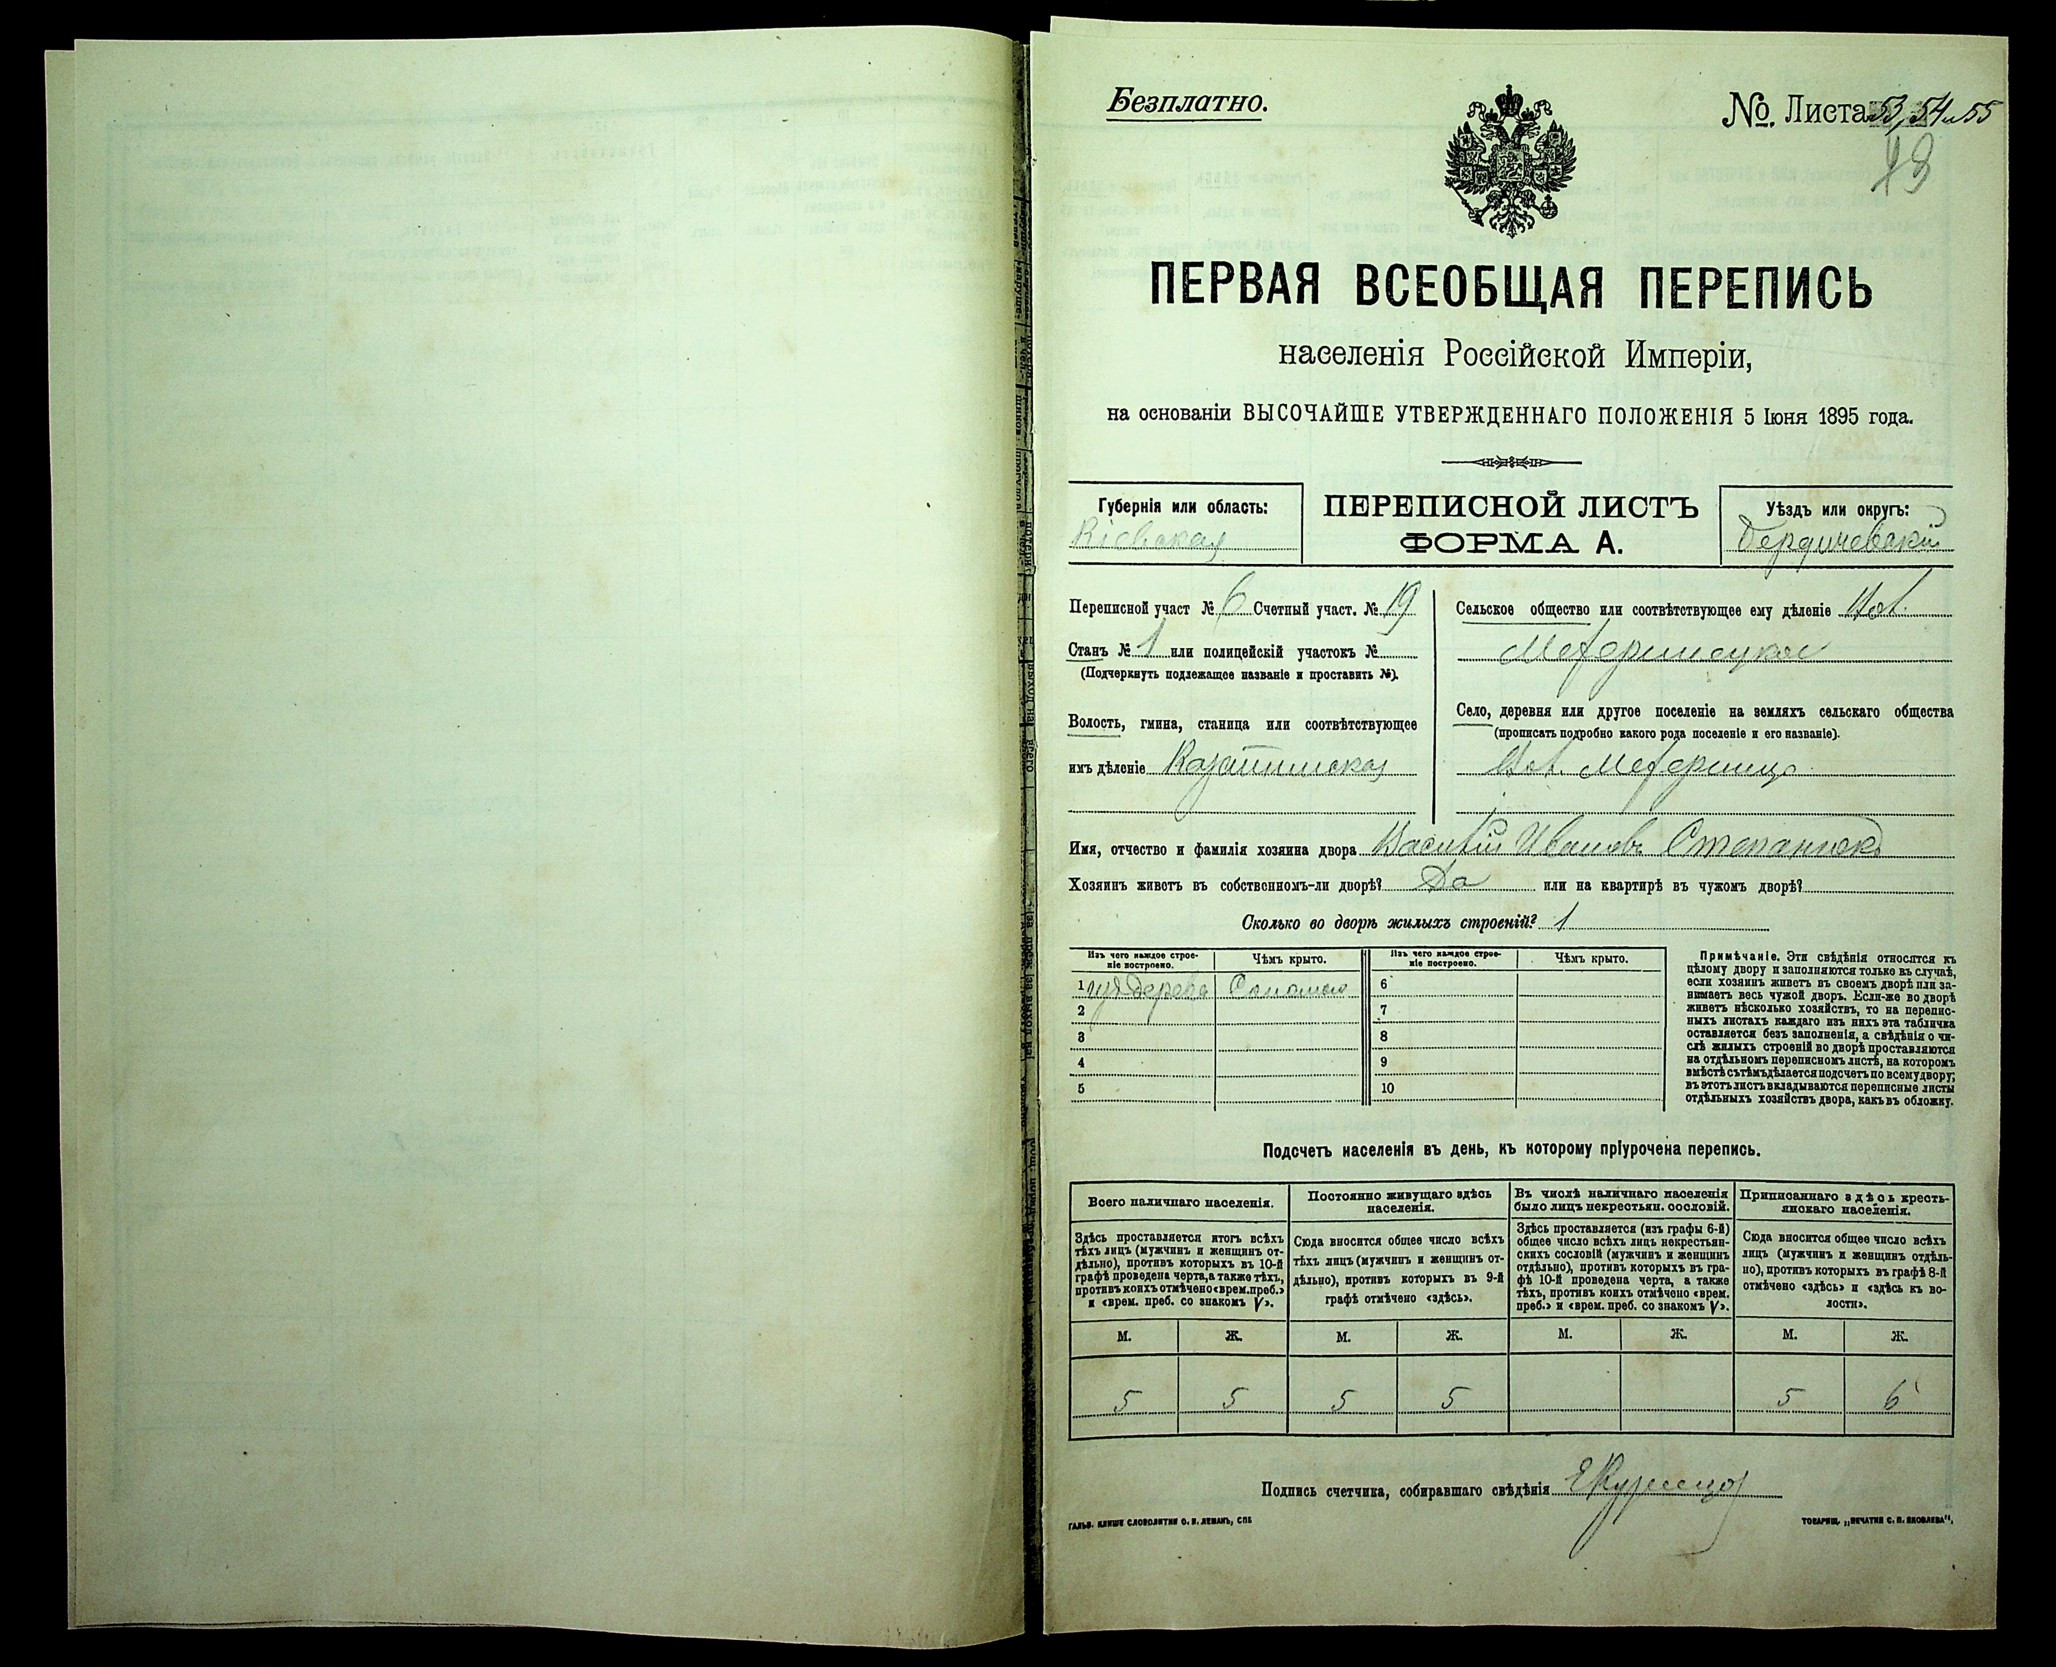 Безплатно.
№. Листа 53, 54 и 55
ПЕРВАЯ ВСЕОБЩАЯ ПЕРЕПИСЬ
населенія Россійской Имперіи,
на основаніи ВЫСОЧАЙШЕ УТВЕРЖДЕННАГО ПОЛОЖЕНІЯ 5 Іюня 1895 года.
Губернія или область:
Кіевская
ПЕРЕПИСНОЙ ЛИСТЪ
ФОРМА А.
Уѣздъ или округъ:
Бердичевскій
Переписной участ № 6 Счетный участ. № 19
Станъ № 1 или полицейскій участокъ №
(Подчеркнуть подлежащее названіе и проставить №).
Волость, гмина, станица или соотвѣтствующее
имъ дѣленіе Козатинская
Сельское общество или соотвѣтствующее ему дѣленіе
Село, деревня или другое поселеніе на земляхъ сельскаго общества
(прописать подробно какого рода поселеніе и его названіе).
Имя, отчество и фамилія хозяина двора Василій Ивановъ Степанюкъ
Хозяинъ живетъ въ собственномъ-ли дворѣ? Да или на квартирѣ въ чужомъ дворѣ?
Сколько во дворѣ жилыхъ строеній? 1
Изъ чего каждое строе-
ніе построено.
Чѣмъ крыто.
Изъ чего каждое строе-
ніе построено.
Чѣмъ крыто.
1 изъ дерева Соломою 6
2 7
3 8
4 9
5 10
Примѣчаніе. Эти свѣдѣнія относятся къ
цѣлому двору и заполняются только въ случаѣ,
если хозяинъ живетъ въ своемъ дворѣ или за-
нимаетъ весь чужой дворъ. Если-же во дворѣ
живетъ нѣсколько хозяйствъ, то на перепис-
ныхъ листахъ каждаго изъ нихъ эта табличка
оставляется безъ заполненія, а свѣдѣнія о чи-
слѣ жилыхъ строеній во дворѣ проставляются
на отдѣльномъ переписномъ листѣ, на которомъ
вмѣстѣ съ тѣмъ дѣлается подсчетъ по всему двору;
въ этотъ листъ вкладываются переписные листы
отдѣльныхъ хозяйствъ двора, какъ въ обложку.
Подсчетъ населенія въ день, къ которому пріурочена перепись.
Всего наличнаго населенія.
Здѣсь проставляется итогъ всѣхъ
тѣхъ лицъ (мужчинъ и женщинъ от-
дѣльно), противъ которыхъ въ 10-й
графѣ проведена черта, а также тѣхъ,
противъ коихъ отмѣчено «врем. преб.»
и «врем. преб. со знакомъ V».
Постоянно живущаго здѣсь
населенія.
Сюда вносится общее число всѣхъ
тѣхъ лицъ (мужчинъ и женщинъ от-
дѣльно), противъ которыхъ въ 9-й
графѣ отмѣчено «здѣсь».
Въ числѣ наличнаго населенія
было лицъ некрестьян. сословій.
Здѣсь проставляется (изъ графы 6-й)
общее число всѣхъ лицъ некрестьян-
скихъ сословій (мужчинъ и женщинъ
отдѣльно), противъ которыхъ въ гра-
фѣ 10-й проведена черта, а также
тѣхъ, противъ коихъ отмѣчено «врем.
преб.» и «врем. преб. со знакомъ V».
Приписаннаго здѣсь кресть-
янскаго населенія.
Сюда вносится общее число всѣхъ
лицъ (мужчинъ и женщинъ отдѣль-
но), противъ которыхъ въ графѣ 8-й
отмѣчено «здѣсь» и «здѣсь къ во-
лости».
М. Ж. М. Ж. М. Ж. М. Ж.
5 5 5 5 5 6
Подпись счетчика, собиравшаго свѣдѣнія
ГАЛЬВ. КЛИШЕ СЛОВОЛИТНИ О. И. ЛЕМАНЪ, СПБ
ТОВАРИЩ. „ПЕЧАТНЯ С. П. ЯКОВЛЕВА“.